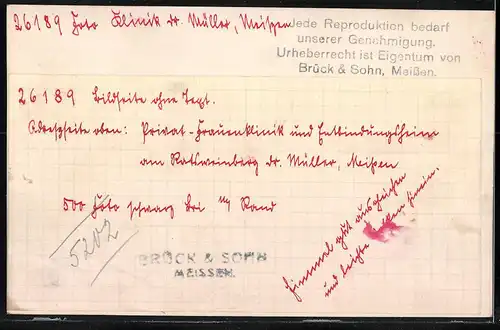 26189 Foto Klinik dr. Müller, Meißen
Jede Reproduktion bedarf
unserer Genehmigung.
Urheberrecht ist Eigentum von
Brück & Sohn, Meißen.
26189 Bildseite ohne Text.
Adreßseite oben: Privat-Frauenklinik und Entbindungsheim
am Ratsweinberg dr. Müller, Meißen
500 Foto schwarz bei Rand
5202
BRÜCK & SOHN
MEISSEN.
Himmel gut ausgleichen
und leichte Wolken hinein.